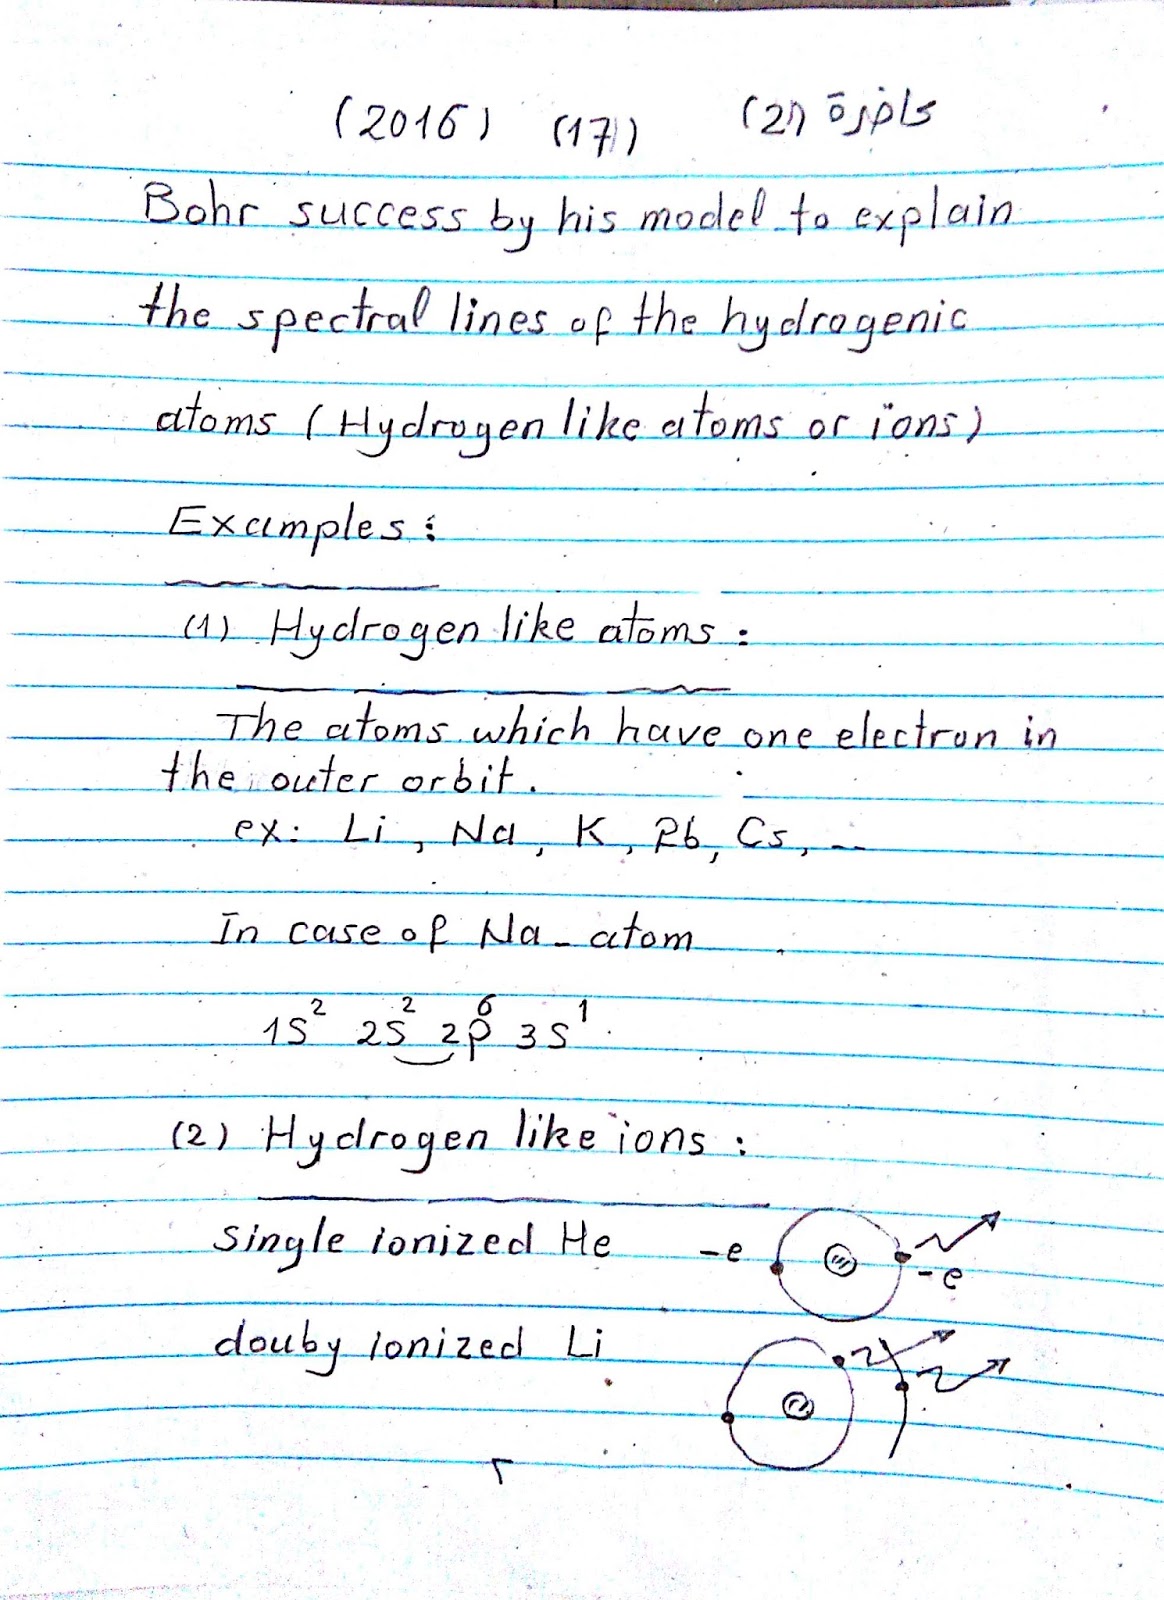 (2016) (17) محاضرة (2)
Bohr success by his model to explain
the spectral lines of the hydrogenic
atoms (Hydrogen like atoms or ions)
Examples:
(1) Hydrogen like atoms:
The atoms which have one electron in
the outer orbit.
ex: Li, Na, K, Rb, Cs, --
In case of Na-atom
1S² 2S² 2p⁶ 3S¹
(2) Hydrogen like ions:
single ionized He -e -e
douby ionized Li
٢